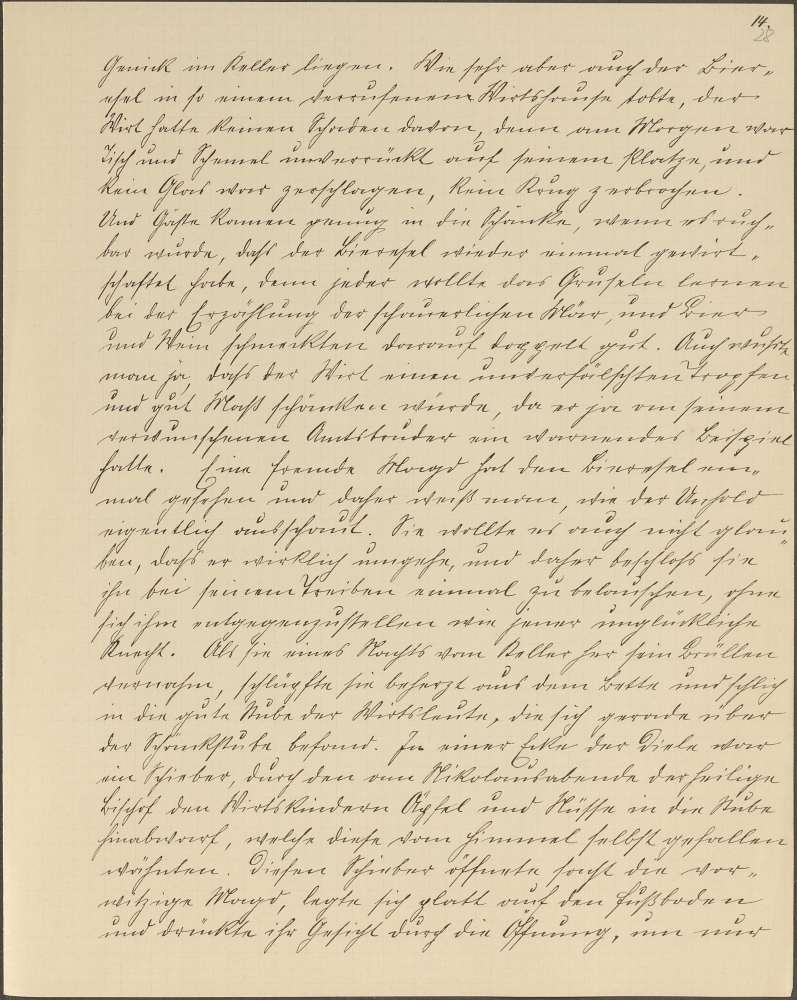 14.
28
Genick im Keller liegen. Wie sehr aber auch der Bier„
esel in so einem verrufenen Wirtshause tobte, der
Wirt hatte keinen Schaden davon, denn am Morgen war
Tisch und Schemel unverrückt auf seinem Platze, und
kein Glas war zerschlagen, kein Krug zerbrochen.
Und Gäste kamen genug in die Schänke, wenn es ruch„
bar wurde, daſs der Bieresel wieder einmal gewirt„
schaftet habe, denn jeder wollte das Gruseln lernen
bei der Erzählung der schauerlichen Mär, und Bier
und Wein schmeckten darauf doppelt gut. Auch wuſste
man ja, daſs der Wirt einen unverfälschten Tropfen
und gut Maß schänken würde, da er ja an seinem
verwunschenen Amtsbruder ein warnendes Beispiel
hatte. Eine fremde Magd hat den Bieresel ein„
mal gesehen und daher weiß man, wie der Unhold
eigentlich ausschaut. Sie wollte es auch nicht glau„
ben, daſs er wirklich umgehe, und daher beschloſs sie
ihn bei seinem Treiben einmal zu belauschen, ohne
sich ihm entgegenzustellen wie jener unglückliche
Knecht. Als sie eines Nachts vom Keller her sein Brüllen
vernahm, schlüpfte sie beherzt aus dem Bette und schlich
in die gute Stube der Wirtsleute, die sich gerade über
der Schänkstube befand. In einer Ecke der Diele war
ein Schieber, durch den am Nikolausabende der heilige
Bischof den Wirtskindern Äpfel und Nüsse in die Stube
hinabwarf, welche diese vom Himmel selbst gefallen
wähnten. Diesen Schieber öffnete sacht die vor„
witzige Magd, legte sich platt auf den Fußboden
und drückte ihr Gesicht durch die Öffnung, um nur